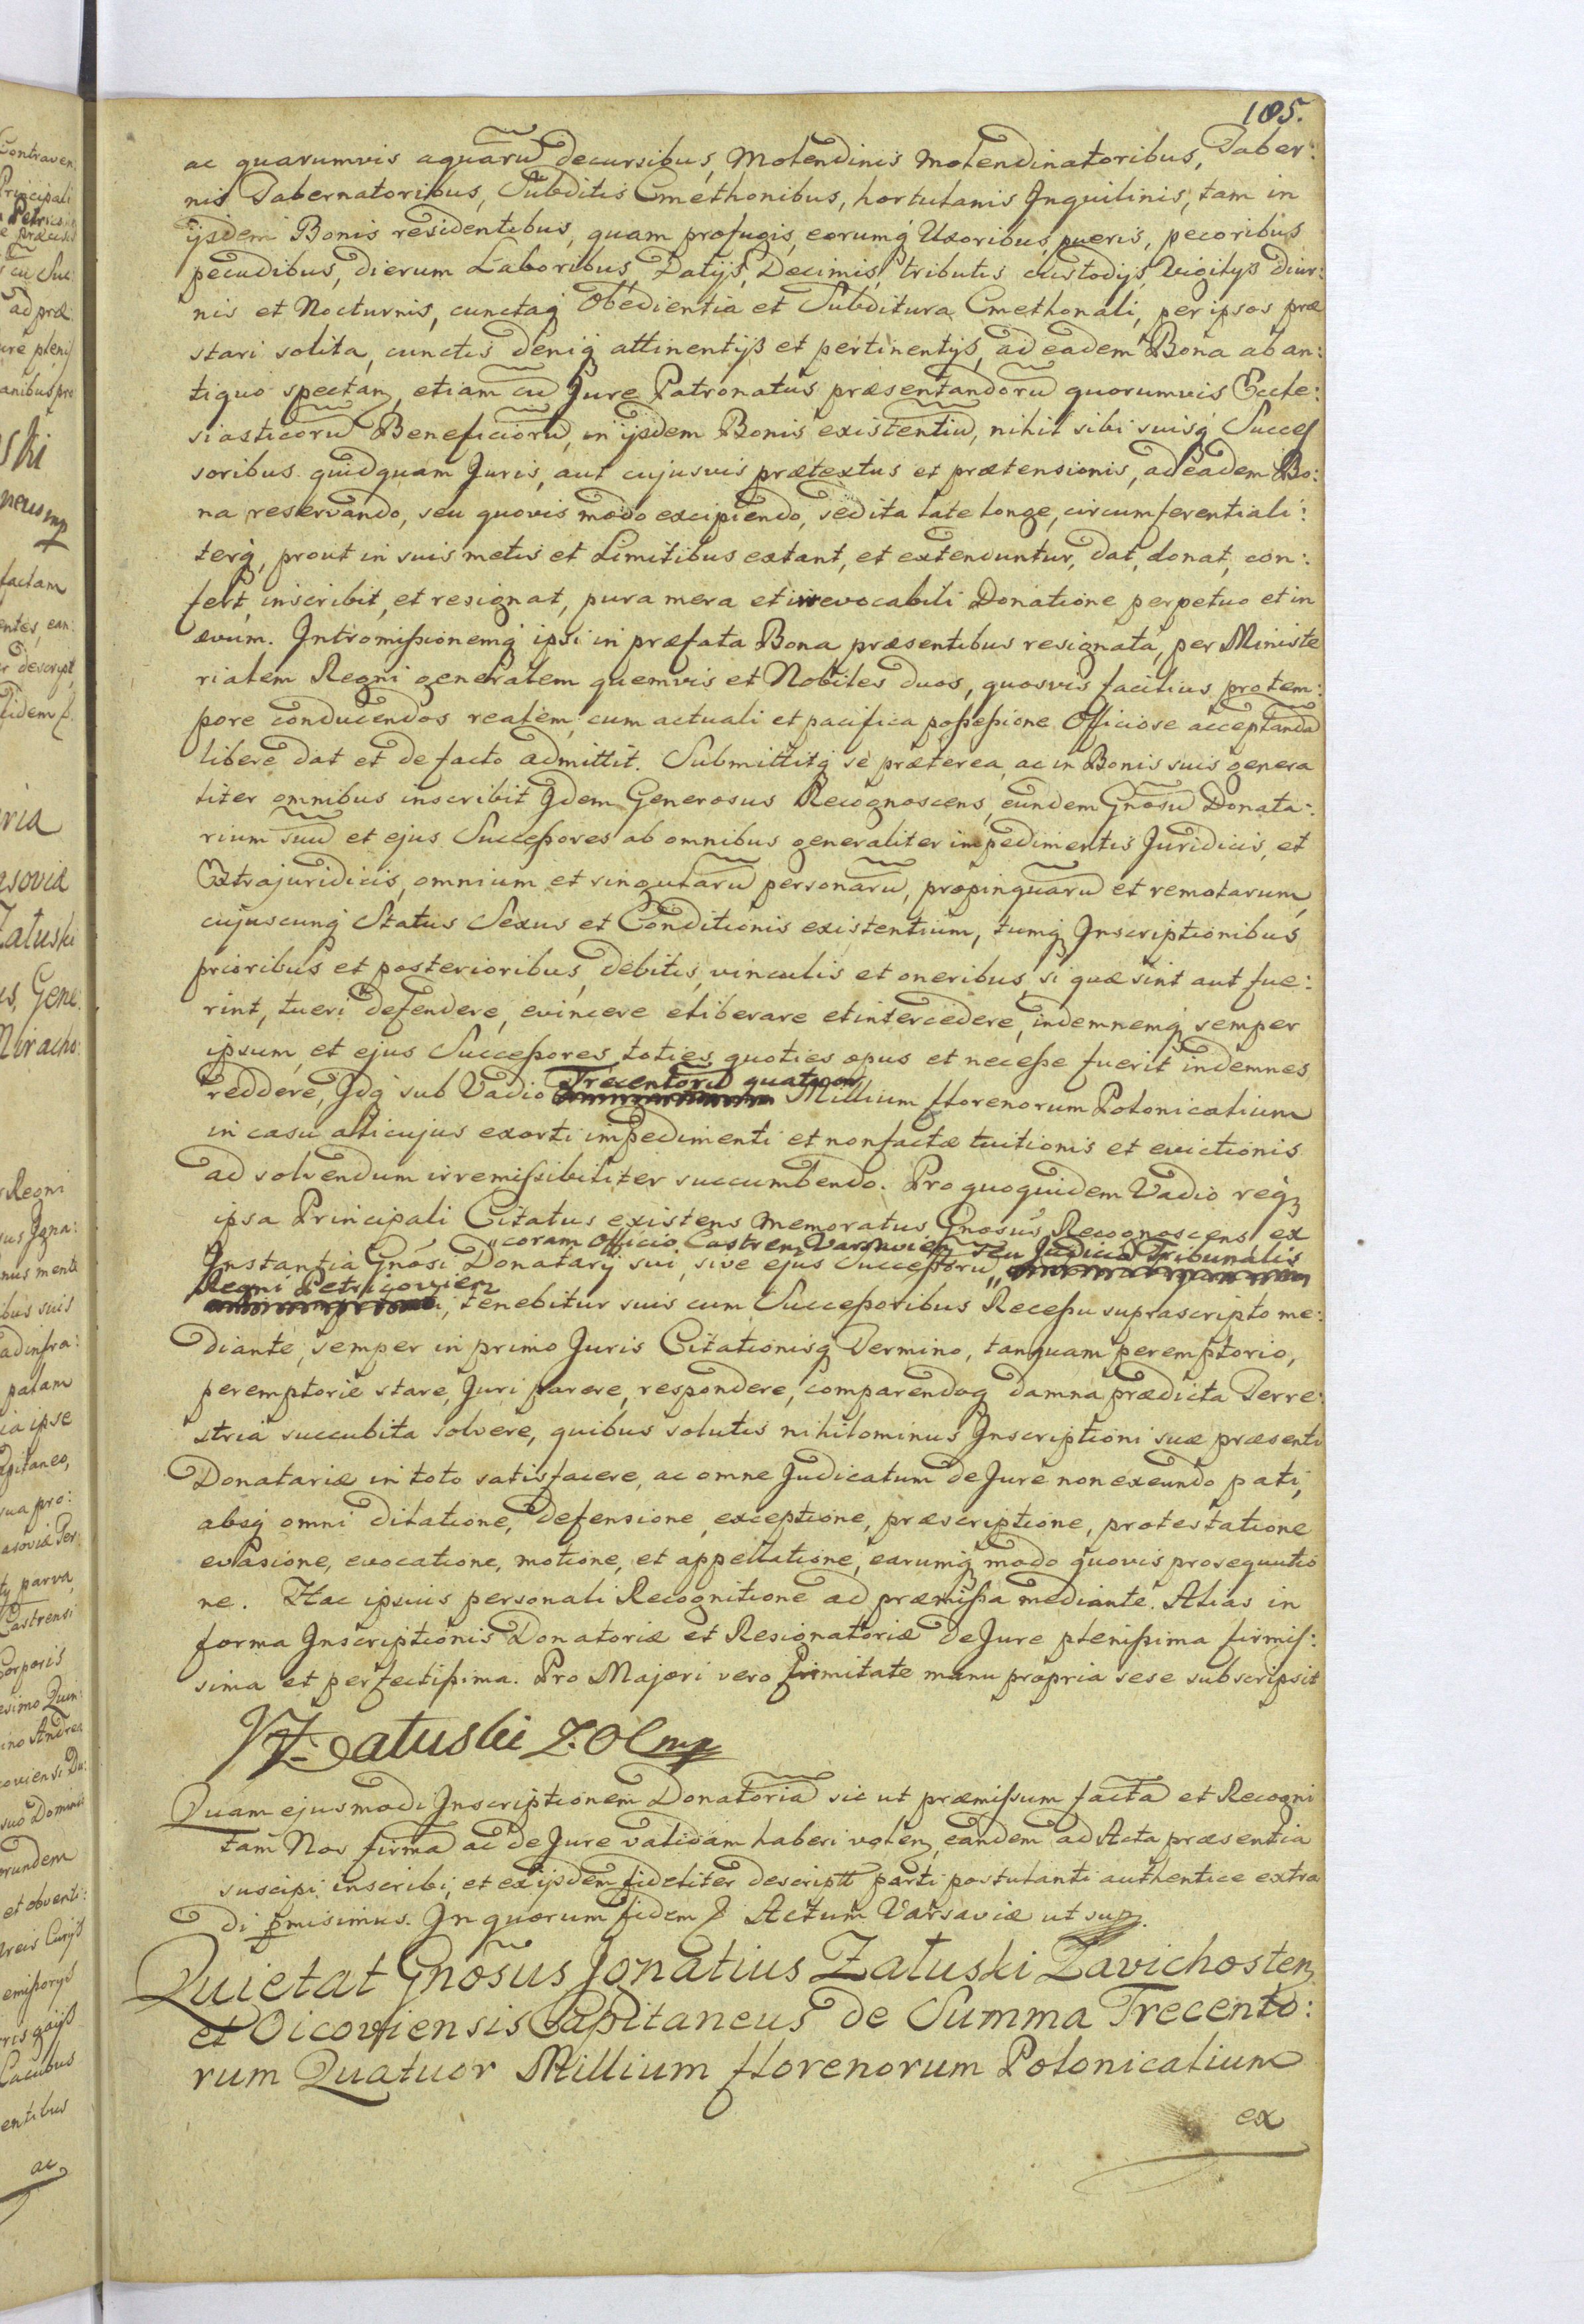 105.
ac quarumvis aquarũ decursibus, Molendinis Molendinatoribus, Taber:
nis Tabernatoribus, Subditis Cmethonibus, hortulanis Inquilinis, tam in
ijsdem Bonis residentibus, quam profugis, eorumq Uxoribus, pueris, pecoribus
pecudibus, dierum Laboribus, Datijs, Decimis, tributis custodijs, Vigilijs diur:
nis et Nocturnis, cunctaq Obedientia et Subditura Cmethonali, per ipsos præ
stari solita, cunctis deniq attinentijs et pertinentijs, ad eadem Bona ab an:
tiquo spectan, etiam cũ Jure Patronatus præsentandorũ quorumvis Eccle:
siasticorũ Beneficiorũ, in ijsdem Bonis existentiũ, nihil sibi suisq Succes
soribus quidquam Juris, aut cujusvis prætextus et prætensionis, ad eadem Bo:
na reservando, seu quovis modo excipiendo, sed ita late longe, circumferentiali:
terq, prout in suis metis et Limitibus extant, et extenduntur, dat, donat, con:
fert, inscribit, et resignat, pura mera et irrevocabili Donatione perpetuo et in
ævum. Intromissionemq ipsi in præfata Bona præsentibus resignata, per Ministe
rialem Regni generalem quemvis et Nobiles duos, quosvis facilius pro tem:
pore conducendos realem, cum actuali et pacifica possessione Officiose acceptandã
libere dat et de facto admittit. Submittitq se præterea, ac in Bonis suis genera
liter omnibus inscribit Idem Generosus Recognoscens, eundem Gnosũ Donata:
rium suũ et ejus Successores ab omnibus generaliter impedimentis Juridicis, et
Extrajuridicis, omnium et singularũ personarũ, propinquarũ et remotarum,
cujuscunq Status Sexus et Conditionis existentium, tumq Inscriptionibus
prioribus et posterioribus, debitis, vinculis et oneribus, si quæ sint aut fue:
rint, tueri defendere, evincere eliberare et intercedere, indemnemq semper
ipsum, et ejus Successores, toties quoties opus et necesse fuerit indemnes
reddere, Idq sub Vadio Trecentorũ quatuor Millium florenorum Polonicalium
in casu alicujus exorti impedimenti et non factæ tuitionis et evictionis
ad solvendum irremissibiliter succumbendo. Pro quoquidem Vadio req
ipsa Principali Citatus existens memoratus Gnosus Recognoscens ex
Instantia Gnosi Donatarij sui, sive ejus Successorũ, coram Officio Castren Varsavien seu Judicio Tribunalis
Regni Petricovien, tenebitur suis cum Successoribus Recessu suprascripto me:
diante, semper in primo Juris Citationisq Termino, tanquam peremptorio,
peremptorie stare, Juri parere, respondere, comparendoq damna prædicta Terre:
stria succubita solvere, quibus solutis nihilominus Inscriptioni suæ præsenti
Donatariæ in toto satisfacere, ac omne Judicatum de Jure non exeundo pati,
absq omni dilatione, defensione, exceptione, præscriptione, protestatione
evasione, evocatione, motione, et appellatione, earumq modo quovis prosequutio
ne. Hac ipsius personali Recognitione ad præmissa mediante. Alias in
forma Inscriptionis Donatoriæ et Resignatoriæ de Jure plenissima firmis:
sima et perfectissima. Pro Majori vero firmitate manu propria sese subscripsit
Załuski Z. O C mp
Quam ejusmodi Inscriptionem Donatoriã sic ut præmissum factã et Recogni
tam Nos firmã ac de Jure validam haberi volen, eandem ad Acta præsentia
suscipi, inscribi, et ex ijsdem fideliter descriptt parti postulanti authentice extra
di pmisimus. In quorum fidem Actum Varsaviæ ut sup.
Quietat Gnosus Ignatius Załuski Zavichosten
et Oicoviensis Capitaneus de Summa Trecento:
rum Quatuor Millium florenorum Polonicalium
ex